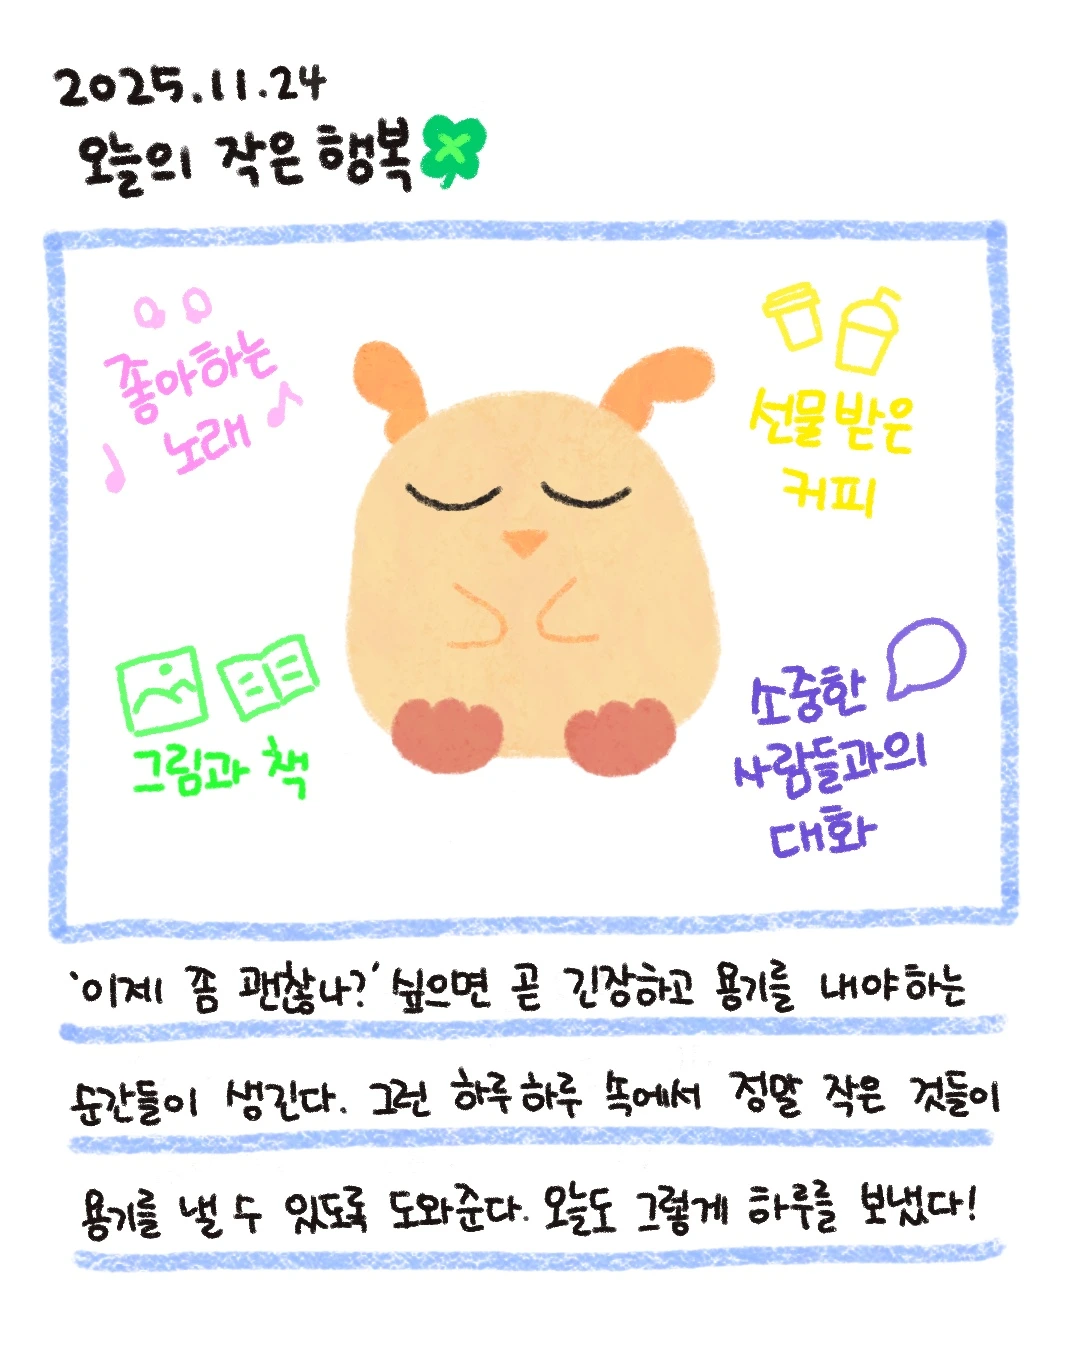 2025.11.24
오늘의 작은 행복
좋아하는
노래
선물 받은
커피
그림과 책
소중한
사람들과의
대화
'이제 좀 괜찮나?' 싶으면 곧 긴장하고 용기를 내야하는
순간들이 생긴다. 그런 하루하루 속에서 정말 작은 것들이
용기를 낼 수 있도록 도와준다. 오늘도 그렇게 하루를 보냈다!